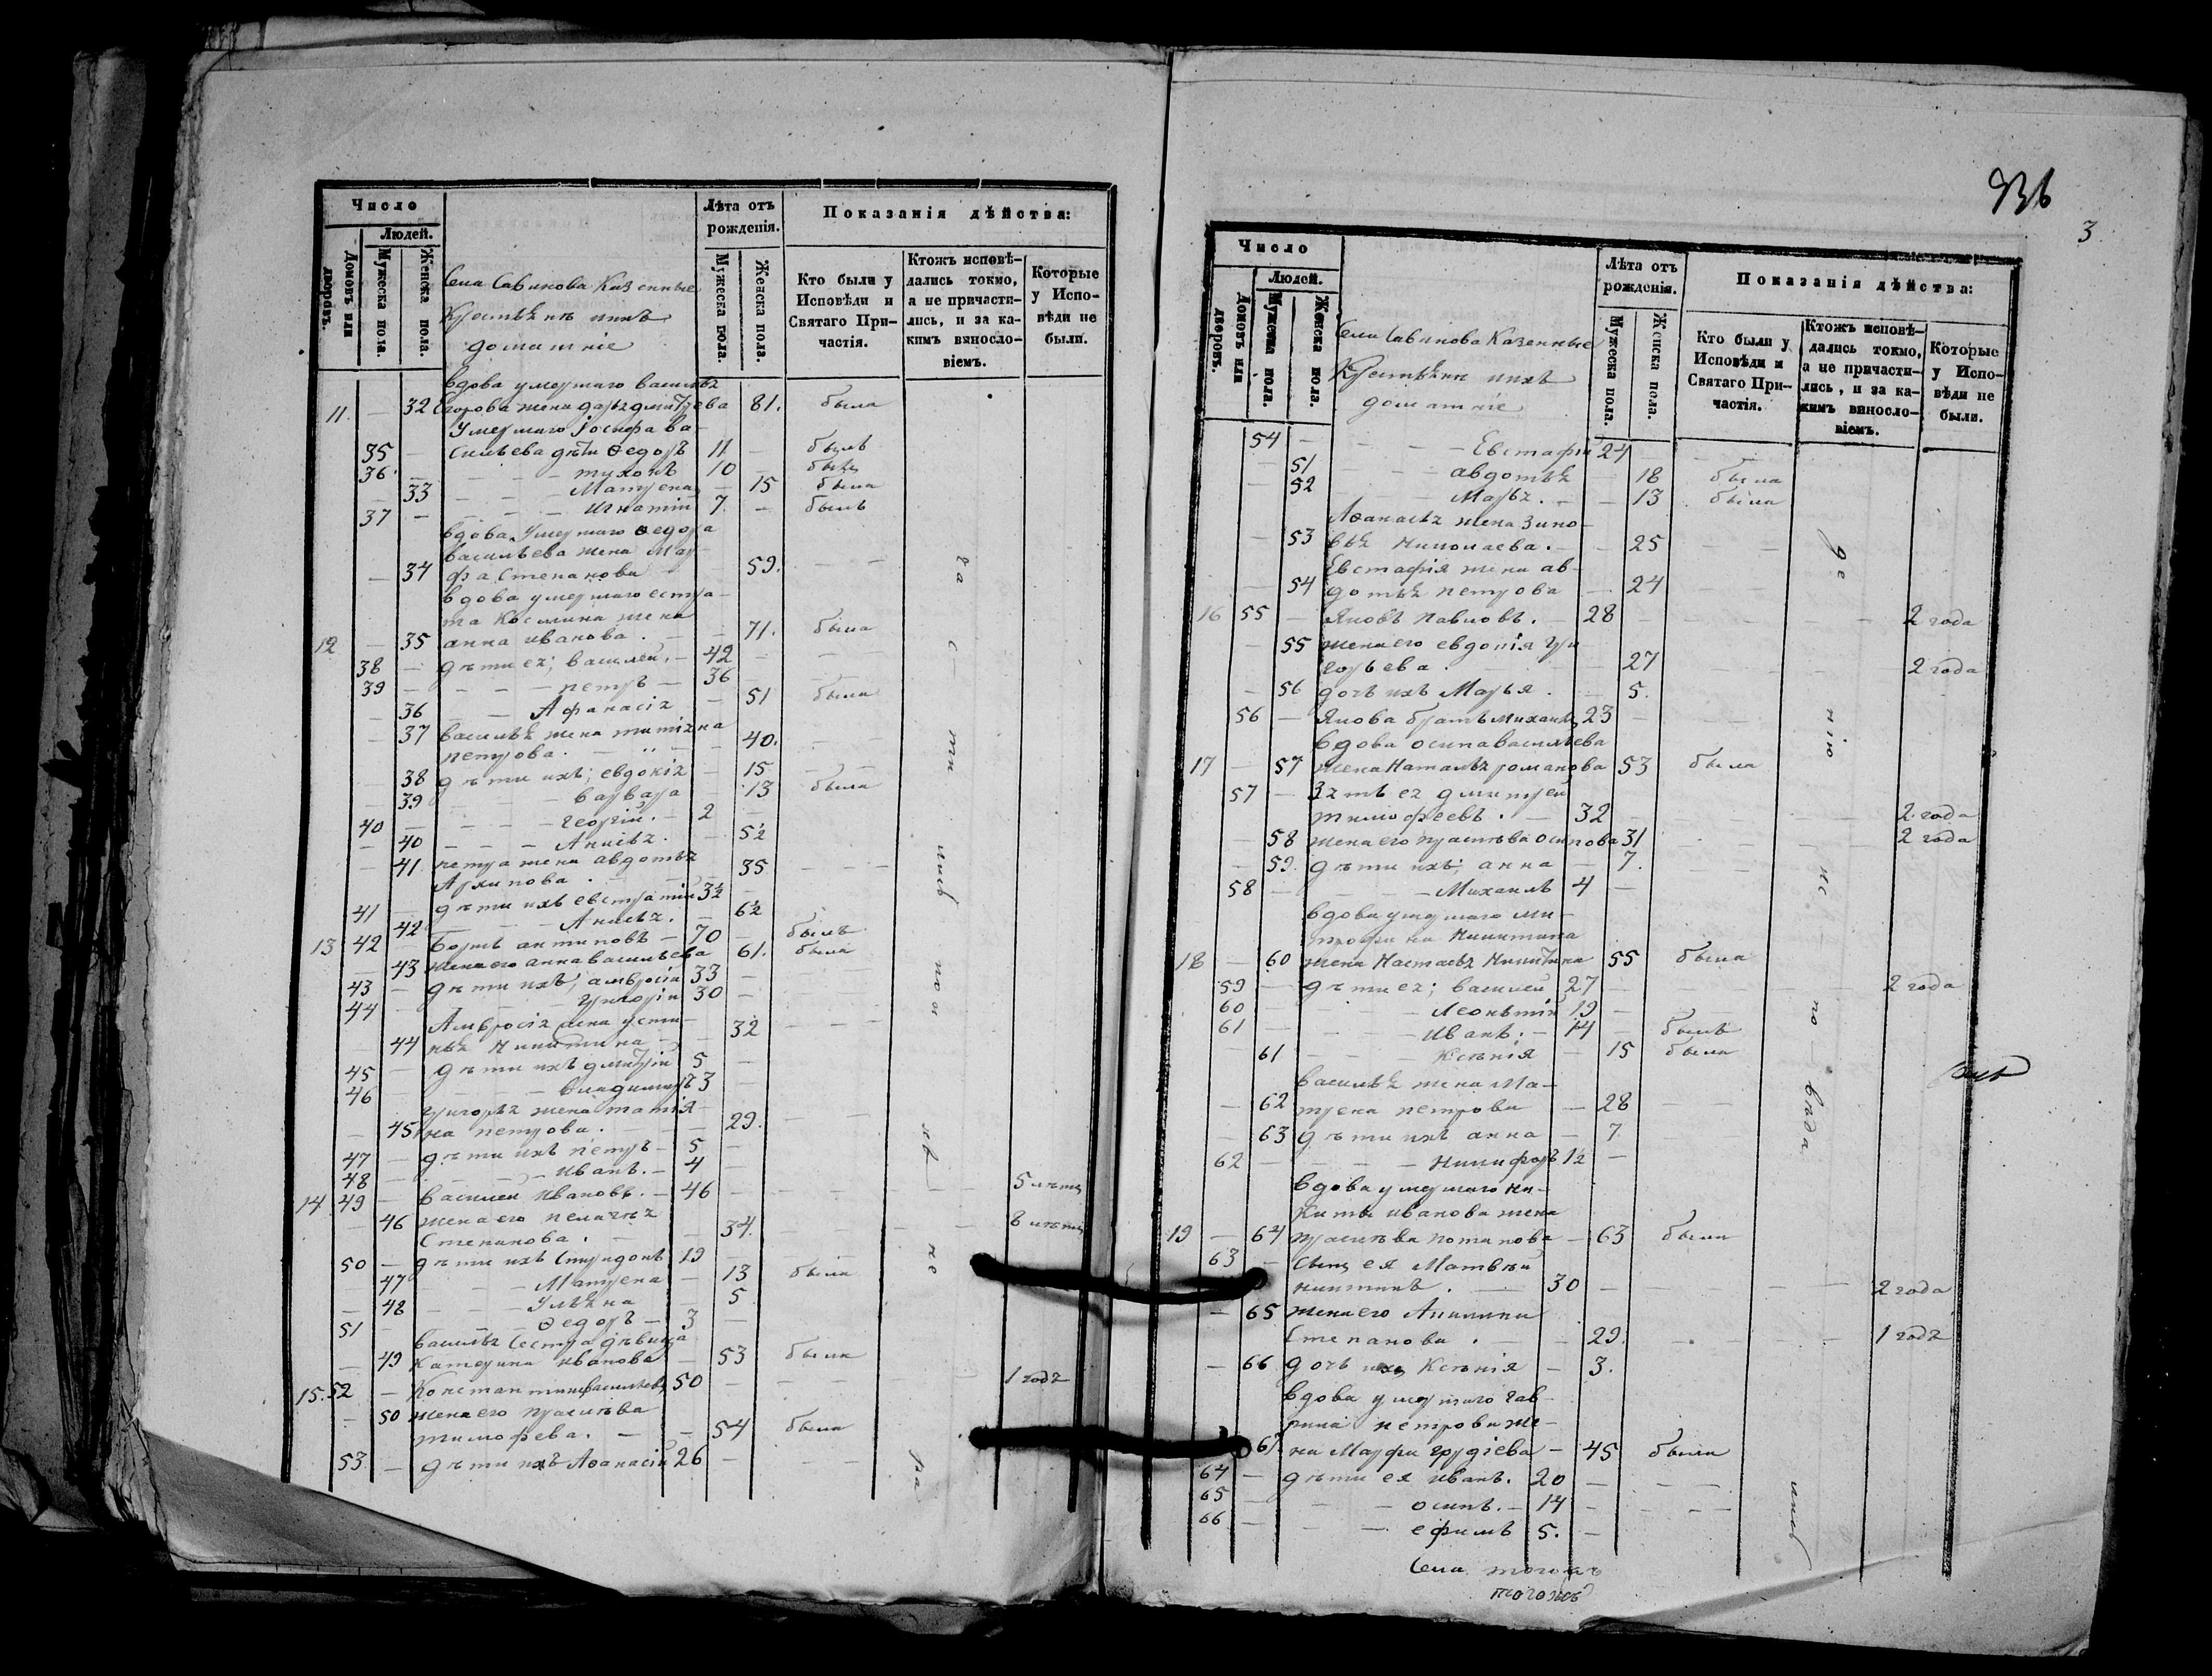 Число
Людей.
Домовъ или дворовъ.
Мужеска пола.
Женска пола.
Села Савинова Казенные
Крестьяне ихъ
домашніе
Лѣта отъ рожденія.
Мужеска пола.
Женска пола.
Показанія дѣйства:
Кто были у Исповѣди и Святаго Причастія.
Ктожъ исповѣдались токмо, а не причастились, и за какимъ винословіемъ.
Которые у Исповѣди не были.
вдова умершаго василья
11. — 32 Егорова жена дарья дмитрева 81. была
Умершаго Іосифа ва-
35 — сильева дѣти Ѳедоръ 11 — былъ
36. — — — 10 — былъ
— 33 — — Матрена — 15 была
37 — — — Игнатій 7. — былъ
вдова умершаго Ѳедора
васильева жена Мар-
— 34 фа Степанова 59. — —
вдова умершаго естра-
та Космина жена
12 — 35 анна иванова. — — 71. была
38 — дѣти ея; василей. — 42 — — —
39 — — — петръ — 36 — — —
— 36 — — Афанасія — 51 была
— 37 василья жена татіяна
петрова. — — — 40. — —
38 дѣти ихъ; евдокія — 15 — —
— 39 — — варвара — 13 была
40 — — — георгій. — 2 —
— 40 — — — Анисья. — 5½
— 41. петра жена авдотья
Архипова. — 35 — — —
41 — дѣти ихъ евстратій 3½ —
42 — — Анисья. — 6½
13 42 — антиповъ — 70 — былъ
— 43 жена его анна васильева 61. была
43 — дѣти ихъ; амвросій 33 —
44 — — — григорій 30 —
Амвросія жена усти-
— 44 нья Никитина — — 32 — — —
45 — дѣти ихъ дмитрій 5 —
46 — — — владимиръ 3 —
григорья жена татія-
— 45 на петрова. — — 29. — —
47 — дѣти ихъ петръ — 5 —
48 — — — иванъ. — 4 —
14 49 — василей Ивановъ. — 46 — — — 5 лѣтъ
— 46 жена его пелагея
Степанова. — — 34. — — 8 лѣтъ
50 — дѣти ихъ Спиридонъ 19 — — —
— 47 — — Матрена — 13 была
— 48 — — — Ульяна — 5
51 — — — Ѳедоръ — 3 —
василья сестра дѣвица
— 49 Катерина иванова — 53 была
15. 52 — Констан тинъ васильевъ 50 — — — 1 годъ
— 50 жена его прасковья
тимофева. — — 54 была
53 — дѣти ихъ Аѳанасій 26 — — —
3
Число
Людей.
Домовъ или дворовъ.
Мужеска пола.
Женска пола.
Села Савинова Казенные
Крестьяне ихъ
домашніе
Лѣта отъ рожденія.
Мужеска пола.
Женска пола.
Показанія дѣйства:
Кто были у Исповѣди и Святаго Причастія.
Ктожъ исповѣдались токмо, а не причастились, и за какимъ винословіемъ.
Которые у Исповѣди не были.
54 — — — Евстафій 24 — —
51 — — авдотья — 18 была
— 52 — — Марья. — — 13 была
Аѳанасья жена Зино-
— 53 вья Николаева. — — 25 — —
Евстафія жена ав-
— 54 дотья петрова — 24 — —
16 55 — Яковъ Павловъ. — 28 — — — — 2 года
— 55 жена его евдокія гри
горьева. — — — 27 — — — 2 года
— 56 дочь ихъ Марья. — — 5.
56 — Якова братъ михаилъ 23 — — —
вдова осипа васильева
17 — 57 жена Наталья романова 53 была
57 — Зять ея дмитрей
тимофеевъ. — 32 — — — 2 года
58 жена его осипова 31 — — — 2 года
— 59. дѣти ихъ; анна — 7. — —
58 — — — Михаилъ 4 —
вдова умершаго ми-
трофана Никитина
18 — 60 жена Настасья Никитина 55 была
59 — дѣти ея; василей 27 — — — 2 года
60 — — — Леонтій 19 —
61 — — — Иванъ. — 14 — былъ
— 61 — — — Ксенія — 15 была
василья жена Ма-
— 62 трена петрова — 28 — —
— 63 дѣти ихъ анна — 7. —
62 — — — Никифоръ 1½ —
вдова умершаго ни-
киты иванова жена
19 — 64 потапова — 63 была
63 — сынъ ея Матвѣй
никитинъ. — 30 — — — — 2 года
— 65 жена его Акилина
Степанова. — — 29. — — — 1 годъ
— 66 дочь ихъ Ксенія — 3.
вдова умершаго гав-
рила петрова же-
67 на Марфа — 45 была
64 — дѣти ея иванъ. 20 — — —
65 — — — осипъ. — 14 — — —
66 — — — ефимъ 5. —
Села тогожъ
тогожъ